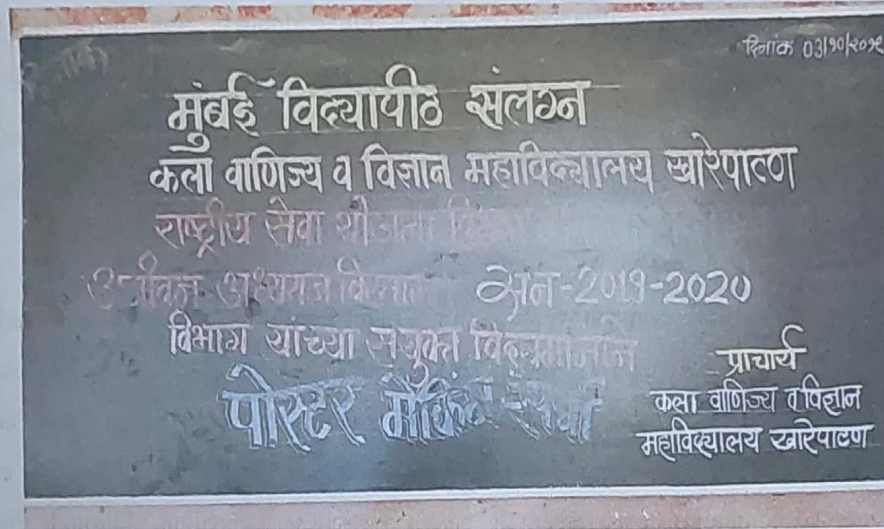 दिनांक 03/10/२०१९
मुंबई विद्यापीठ संलग्न
कला वाणिज्य व विज्ञान महाविद्यालय खारेपाटण
राष्ट्रीय सेवा योजना विभाग
आजीवन अध्ययन विस्तार सन-2019-2020
विभाग यांच्या संयुक्त विद्यमानाने
पोस्टर मेकिंग-स्पर्धा
प्राचार्य
कला वाणिज्य व विज्ञान
महाविद्यालय खारेपाटण